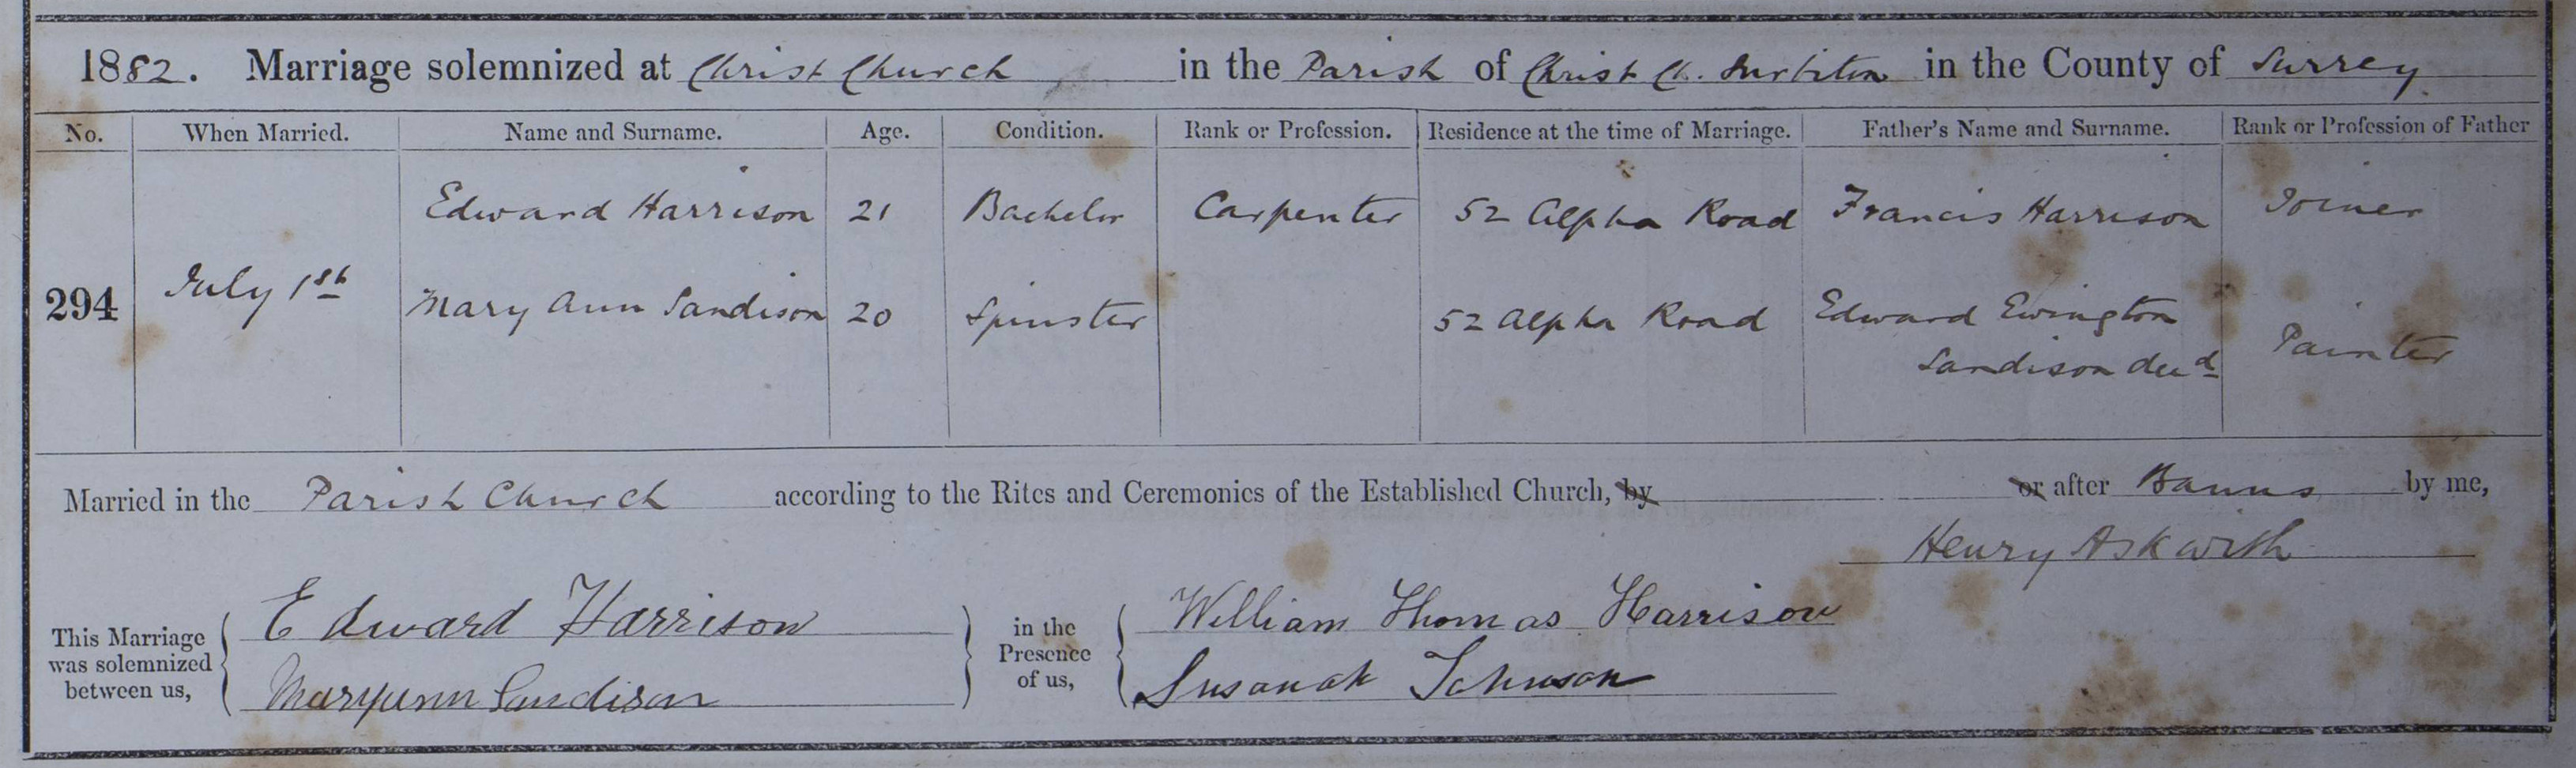 1882. Marriage solemnized at Christ Church in the Parish of Christ Ch. Surbiton in the County of Surrey
No. When Married. Name and Surname. Age. Condition. Rank or Profession. Residence at the time of Marriage. Father's Name and Surname. Rank or Profession of Father
Edward Harrison 21 Bachelor Carpenter 52 Alpha Road Francis Harrison Joiner
294 July 1st Mary Ann Sandison 20 Spinster 52 Alpha Road Edward Ewington Painter
Sandison decd
Married in the Parish Church according to the Rites and Ceremonies of the Established Church, by or after Banns by me,
Henry Askwith
This Marriage was solemnized between us,
Edward Harrison
Maryann Sandison
in the Presence of us,
William Thomas Harrison
Susanah Johnson